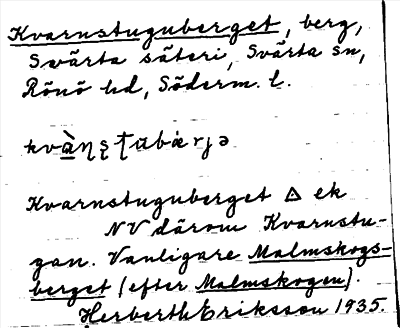 Kvarnstuguberget, berg,
Svärta säteri, Svärta sn,
Rönö hd, Söderm. l.
kvὰɳʂʈɷbα̇rjə
Kvarnstuguberget ek
NV därom Kvarnstu-
gan. Vanligare Malmskogs-
berget (efter Malmskogen).
Herberth Eriksson 1935.